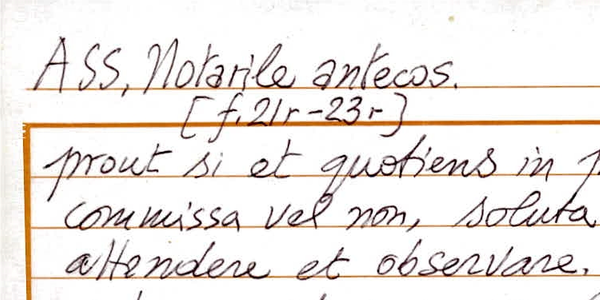 ASS, Notarile antecos.
[f. 21r-23r]
prout si et quotiens in
commissa vel non, soluta
attendere et observare.